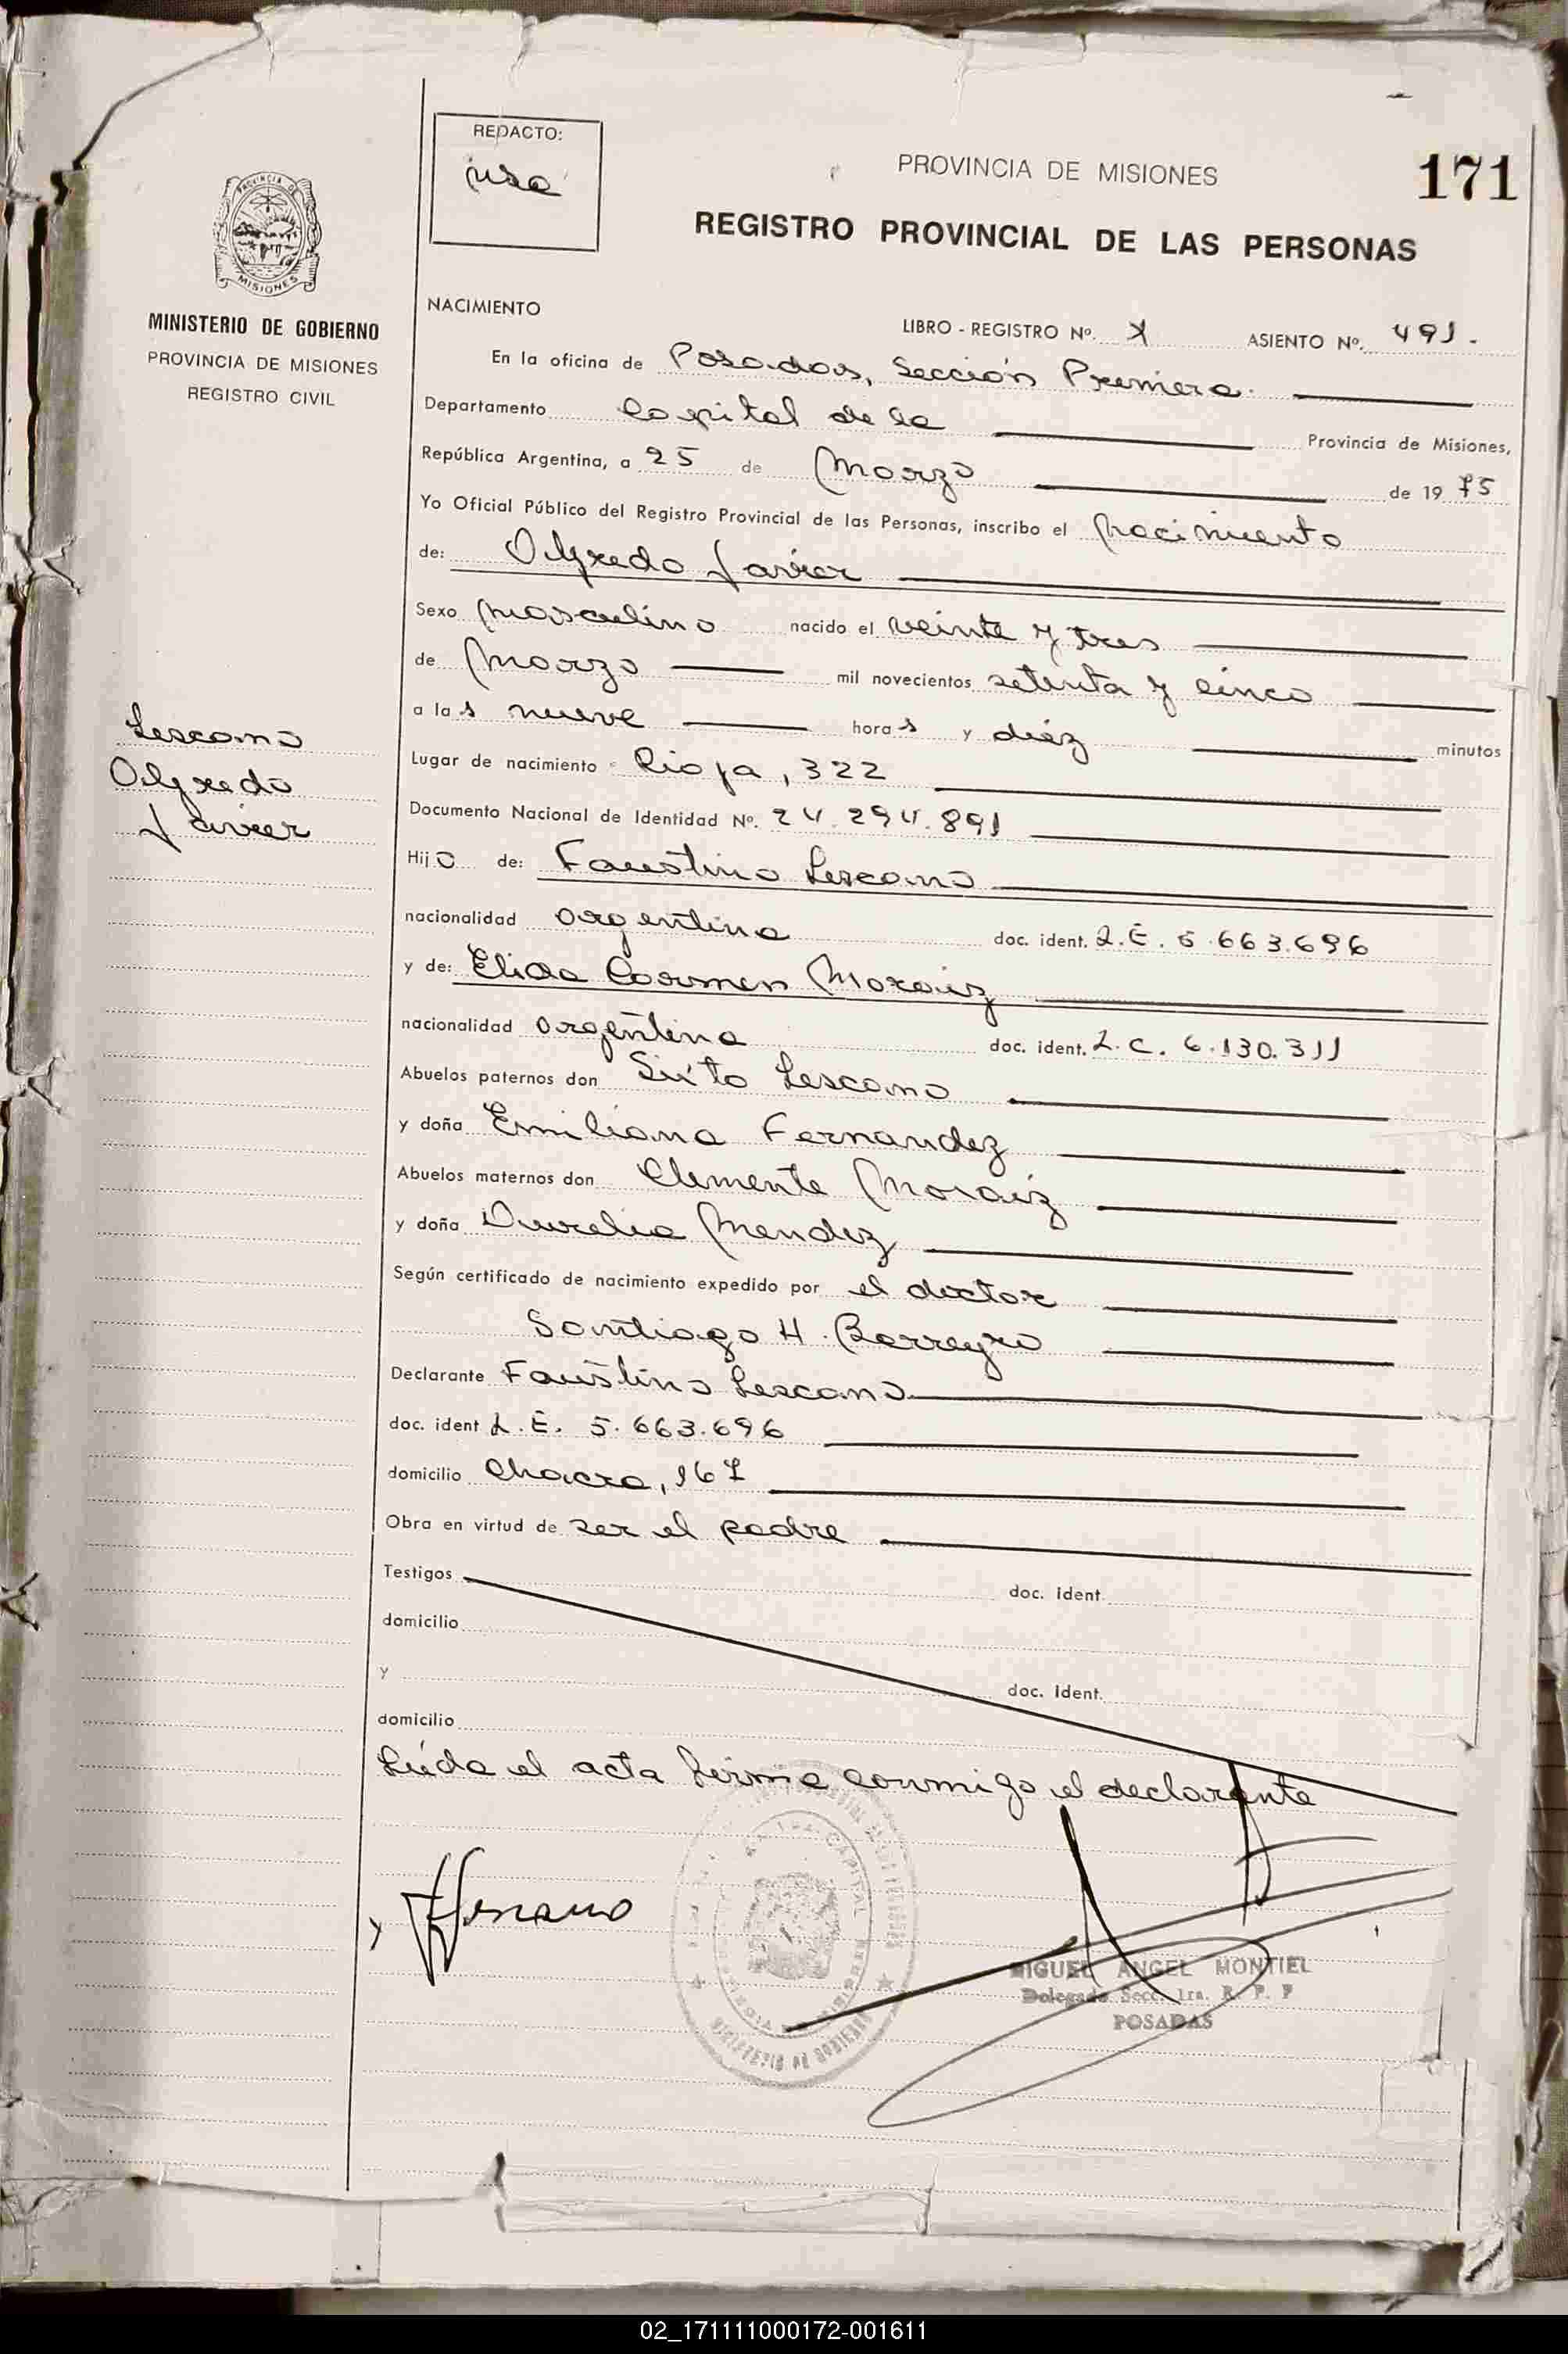 REDACTO:
PROVINCIA DE MISIONES
171
REGISTRO PROVINCIAL DE LAS PERSONAS
MISIONES
MINISTERIO DE GOBIERNO
PROVINCIA DE MISIONES
REGISTRO CIVIL
NACIMIENTO
LIBRO - REGISTRO Nº. X ASIENTO Nº. 491.
En la oficina de Posadas, Sección Primera.
Departamento Capital de la Provincia de Misiones,
República Argentina, a 25 de Marzo de 1975
Yo Oficial Público del Registro Provincial de las Personas, inscribo el Nacimiento
de: Alfredo Javier
Sexo Masculino nacido el veinte y tres
de Marzo mil novecientos setenta y cinco
a las nueve horas y diéz minutos
Lescano
Alfredo
Javier
Lugar de nacimiento Rioja, 322
Documento Nacional de Identidad Nº. 24.294.891
Hijo de: Faustino Lescano
nacionalidad argentina doc. ident. L.E. 5.663.696
y de: Elida Carmen Moraiz
nacionalidad argentina doc. ident. L.C. 6.130.311
Abuelos paternos don Sixto Lescano
y doña Emiliana Fernandez
Abuelos maternos don Clemente Moraiz
y doña Aurelia Mendez
Según certificado de nacimiento expedido por el doctor
Santiago H. Barreyro
Declarante Faustino Lescano
doc. ident L.E. 5.663.696
domicilio Chacra, 167
Obra en virtud de ser el padre
Testigos doc. ident.
domicilio
y doc. ident.
domicilio
Leída el acta firma conmigo el declarante
MIGUEL ANGEL MONTIEL
Delegado Secc. 1ra. R. P. P
POSADAS
02_171111000172-001611